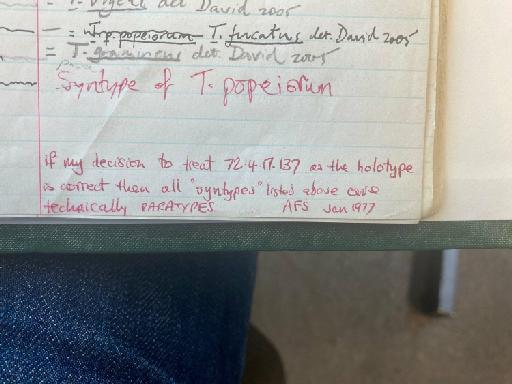 = T. vogeli det David 2005
— = T. p. popeiorum T. fucatus det. David 2005
= T. gramineus det. David 2005
Syntype of T. popeiorum
if my decision to treat 72.4.17.137 as the holotype
is correct then all "syntypes" listed above are
technically PARATYPES AFS Jan 1977